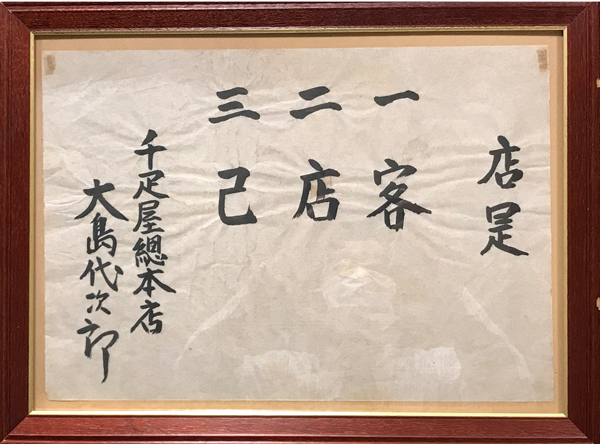 店是
一 客
二 店
三 己
千疋屋總本店
大島代次郎